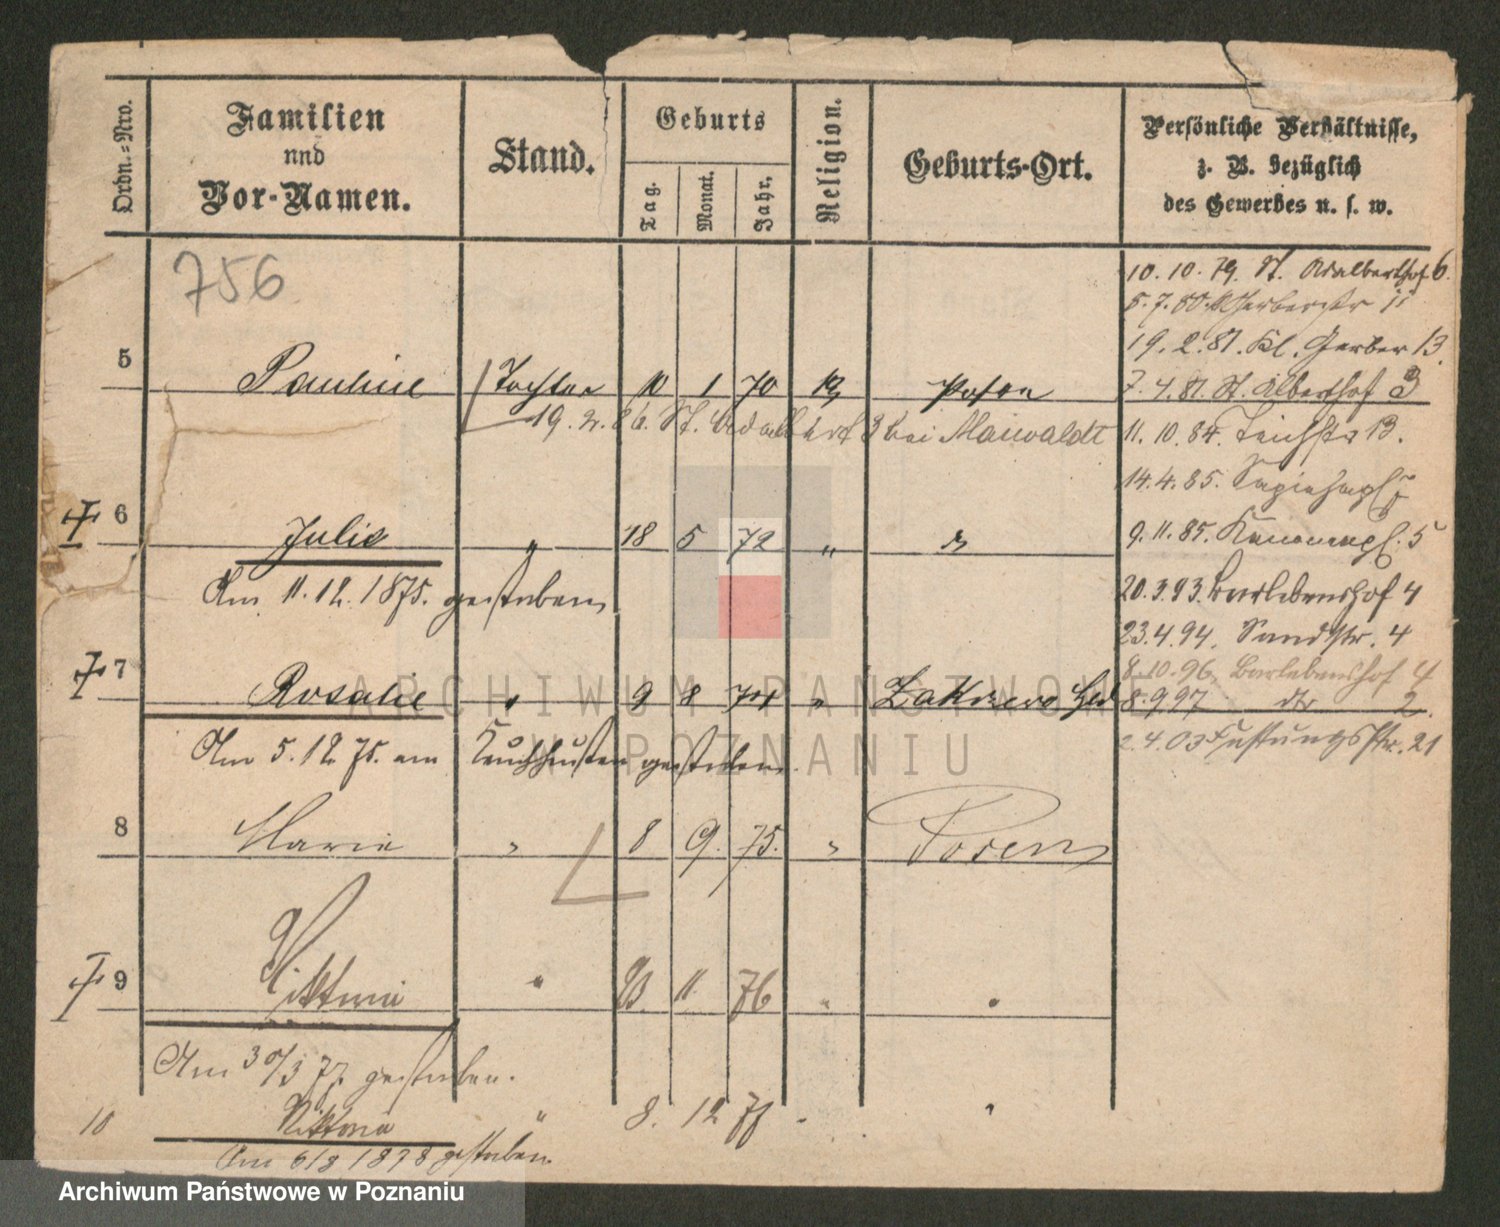 Ordn.-Nro.
Familien
nnd
Vor-Namen.
Stand.
Geburts
Tag.
Monat.
Jahr.
Religion.
Geburts-Ort.
Persönliche Verhältnisse,
z. B. bezüglich
des Gewerbes u. s. w.
756
10.10.79. St. Adalberthof 6.
5.7.80. Gerberstr 11
19.2.81. Kl. Gerber 13.
5 Pauline Tochter 10 1 70 Posen
7.4.81. St. Alberthof 3
19.2.86. St. Adalbert 3 bei Maiwaldt
11.10.84. Teichstr 13.
14.4.85. Sapiehapl
6 Julie " 18 5 72 " "
9.11.85. Kanonenpl. 5
Am 11.12.1875. gestorben
20.3.93. Barlebenshof 4
23.4.94. Sandstr. 4
8.10.96. Barlebenshof 4
7 Rosalie " 9 8 74 " Zakrzewo Hld
8.9.97 dto 2.
2.4.03 Festungsstr. 21
Am 5.12.75. am Keuchhusten gestorben
8 Marie " 8 9. 75. " Posen
9 Viktoria " 23. 11. 76 " "
Am 30/3 77. gestorben.
10 Viktoria " 8. 12 77 "
Am 6/8 1878 gestorben
ARCHIWUM PAŃSTWOWE
W POZNANIU
Archiwum Państwowe w Poznaniu